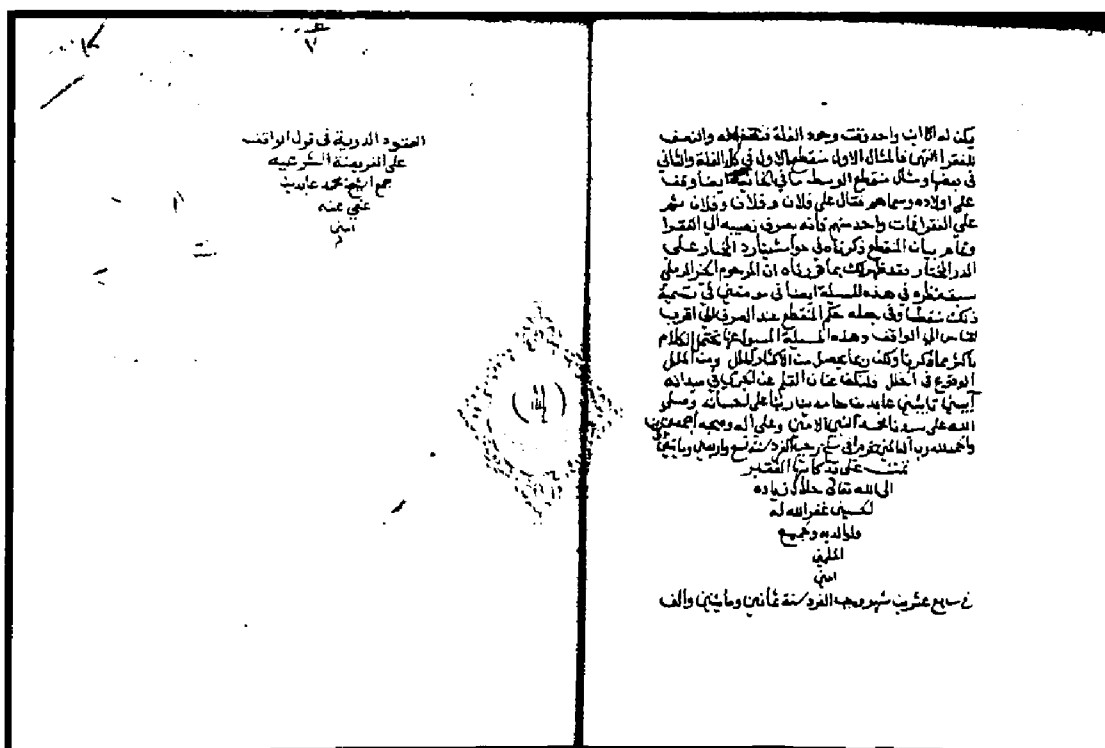 يكن له الا ابن واحد وقت وجود الغلة فنصفها له والنصف
للفقرا انتهى فالمثال الاول منقطع الاول في كل الغلة والثاني
في بعضها ومثال منقطع الوسط ما في الخانية ايضا وقف
على اولاده وسماهم فقال على فلان وفلان وفلان ثم
على الفقرا فمات واحد منهم فانه يصرف نصيبه الى الفقرا
وتمام بيان المنقطع ذكرناه في حواشينا رد المحتار على
الدر المختار فقد ظهر لك بما قررناه ان المرحوم الخير الرملي
سبق نظره في هذه المسيلة ايضا في موضعين في تسمية
ذلك منقطعا وفي جعله حكم المنقطع عند الصرف الى اقرب
الناس الى الواقف وهذه المسيلة المسول عنها تحتمل الكلام
باكثر مما ذكرنا ولكن ربما يحصل من الاكثار الملل ومن الملل
الوقوع في الخلل فلنكف عنان القلم عن الجري في ميدانه
آيبين تايبين عابدين حامدين لربنا على احسانه وصلى
الله على سيدنا محمد النبي الامين وعلى آله وصحبه اجمعين
والحمد لله رب العالمين في رجب الفرد سنة تسع واربعين ومايتين
تمت على يد كاتبها الفقير
الى الله تعالى
الحسيني غفر الله له
ولوالديه وجميع
المسلمين
امين
في سابع عشرين شهر رجب الفرد سنة ثمانين ومأيتين والف
العقود الدرية في قول الواقف
على الفريضة الشرعيه
جمع الشيخ محمد عابدين
عفي عنه
امين
م